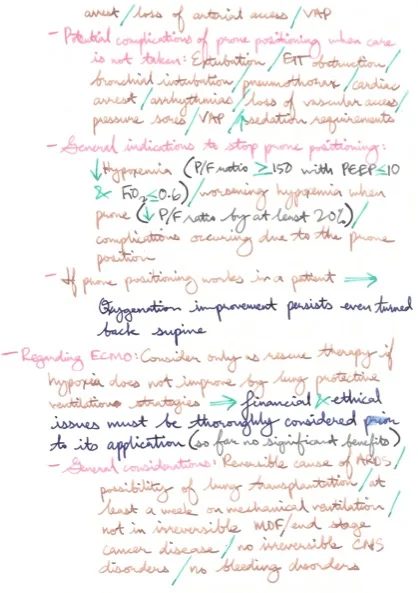 arrest/loss of arterial access/VAP
- Potential complications of prone positioning when care
is not taken: Extubation/ETT obstruction/
bronchial intubation/pneumothorax/cardiac
arrest/arrhythmias/loss of vascular access/
pressure sores/VAP/↑sedation requirements
- General indications to stop prone positioning:
↓Hypoxemia (P/F ratio ≥150 with PEEP≤10
& FiO2≤0.6)/worsening hypoxemia when
prone (↓P/F ratio by at least 20%)/
complications occuring due to the prone
position
- If prone positioning works in a patient ⇒
Oxygenation improvement persists even turned
back supine
- Regarding ECMO: Consider only as rescue therapy if
hypoxia does not improve by lung protective
ventilation strategies ⇒ financial & ethical
issues must be thoroughly considered prior
to its application (so far no significant benefits)
- General considerations: Reversible cause of ARDS/
possibility of lung transplantation/at
least a week on mechanical ventilation/
not in irreversible MOF/end stage
cancer disease/no irreversible CNS
disorders/no bleeding disorders